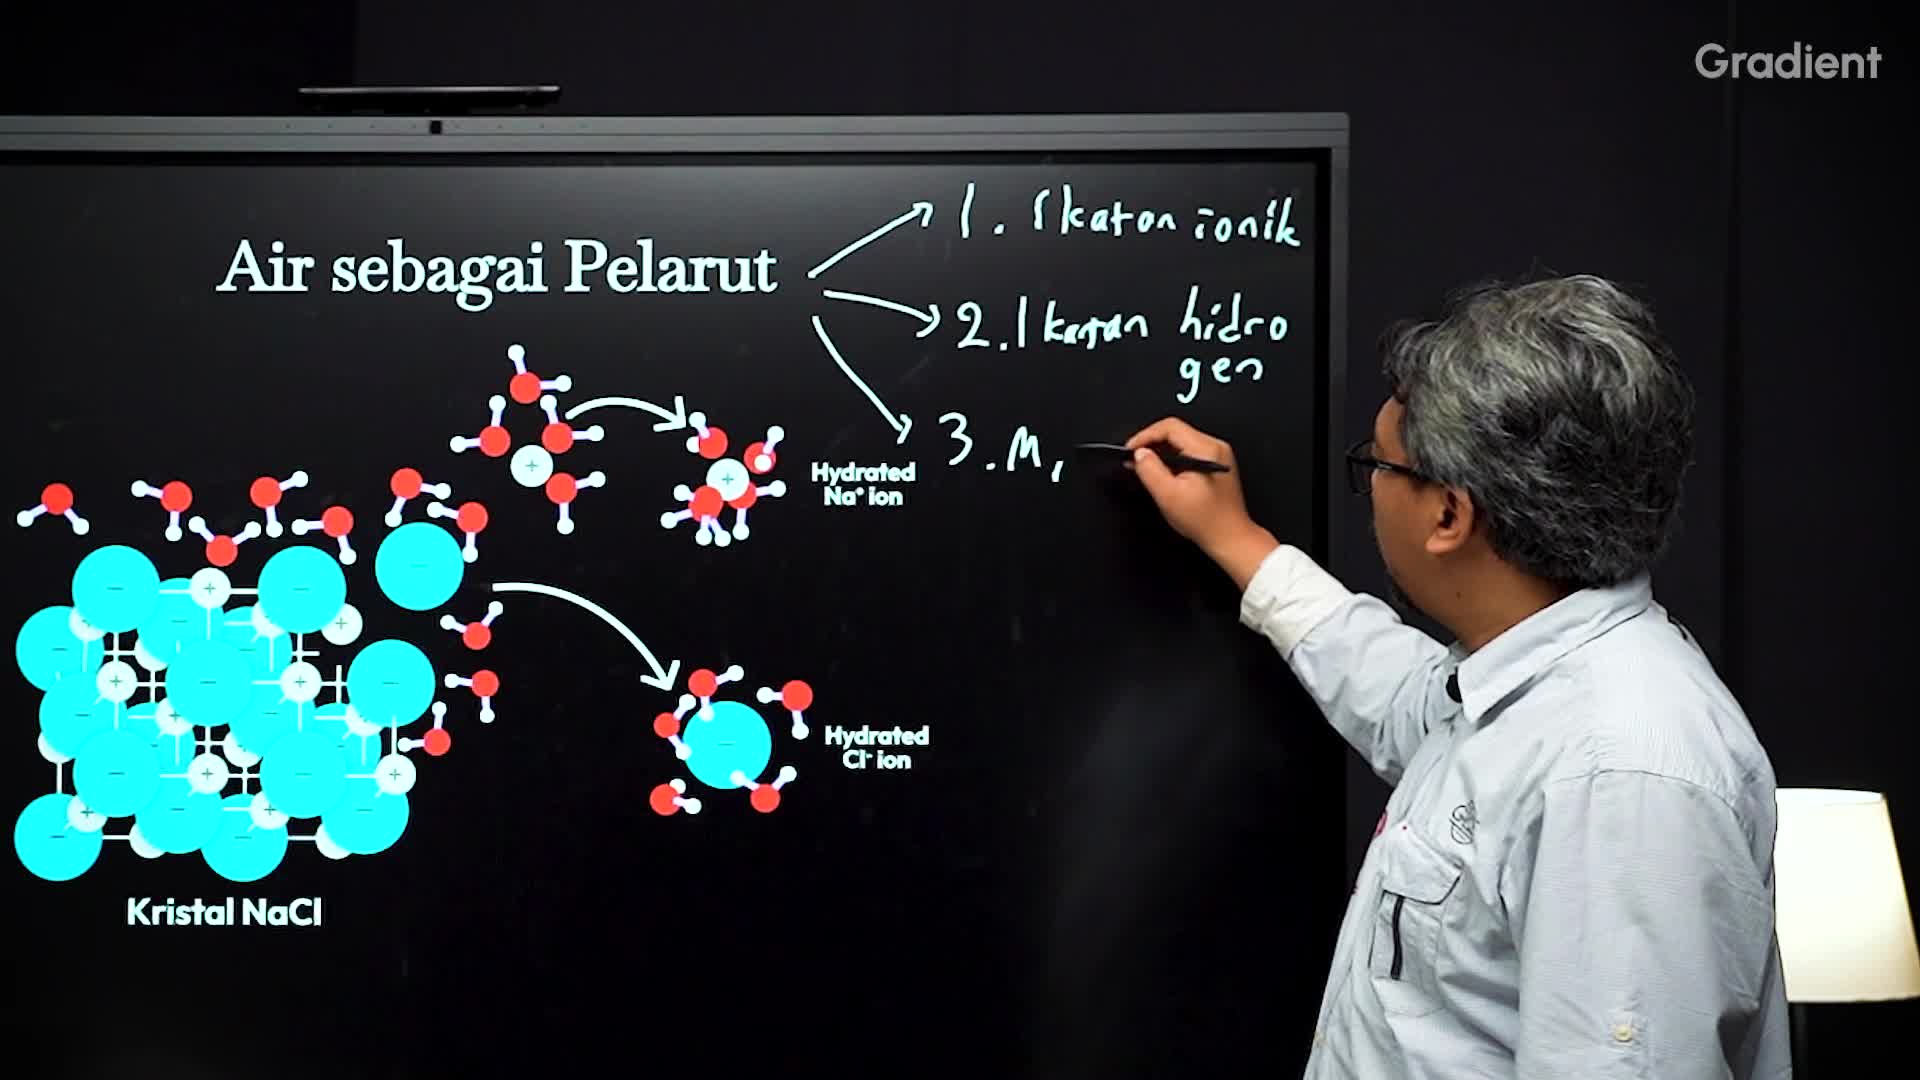 Gradient
Air sebagai Pelarut
1. Ikatan ionik
2. Ikatan hidro
gen
3. Mi
Hydrated
Na⁺ ion
Hydrated
Cl⁻ ion
Kristal NaCl